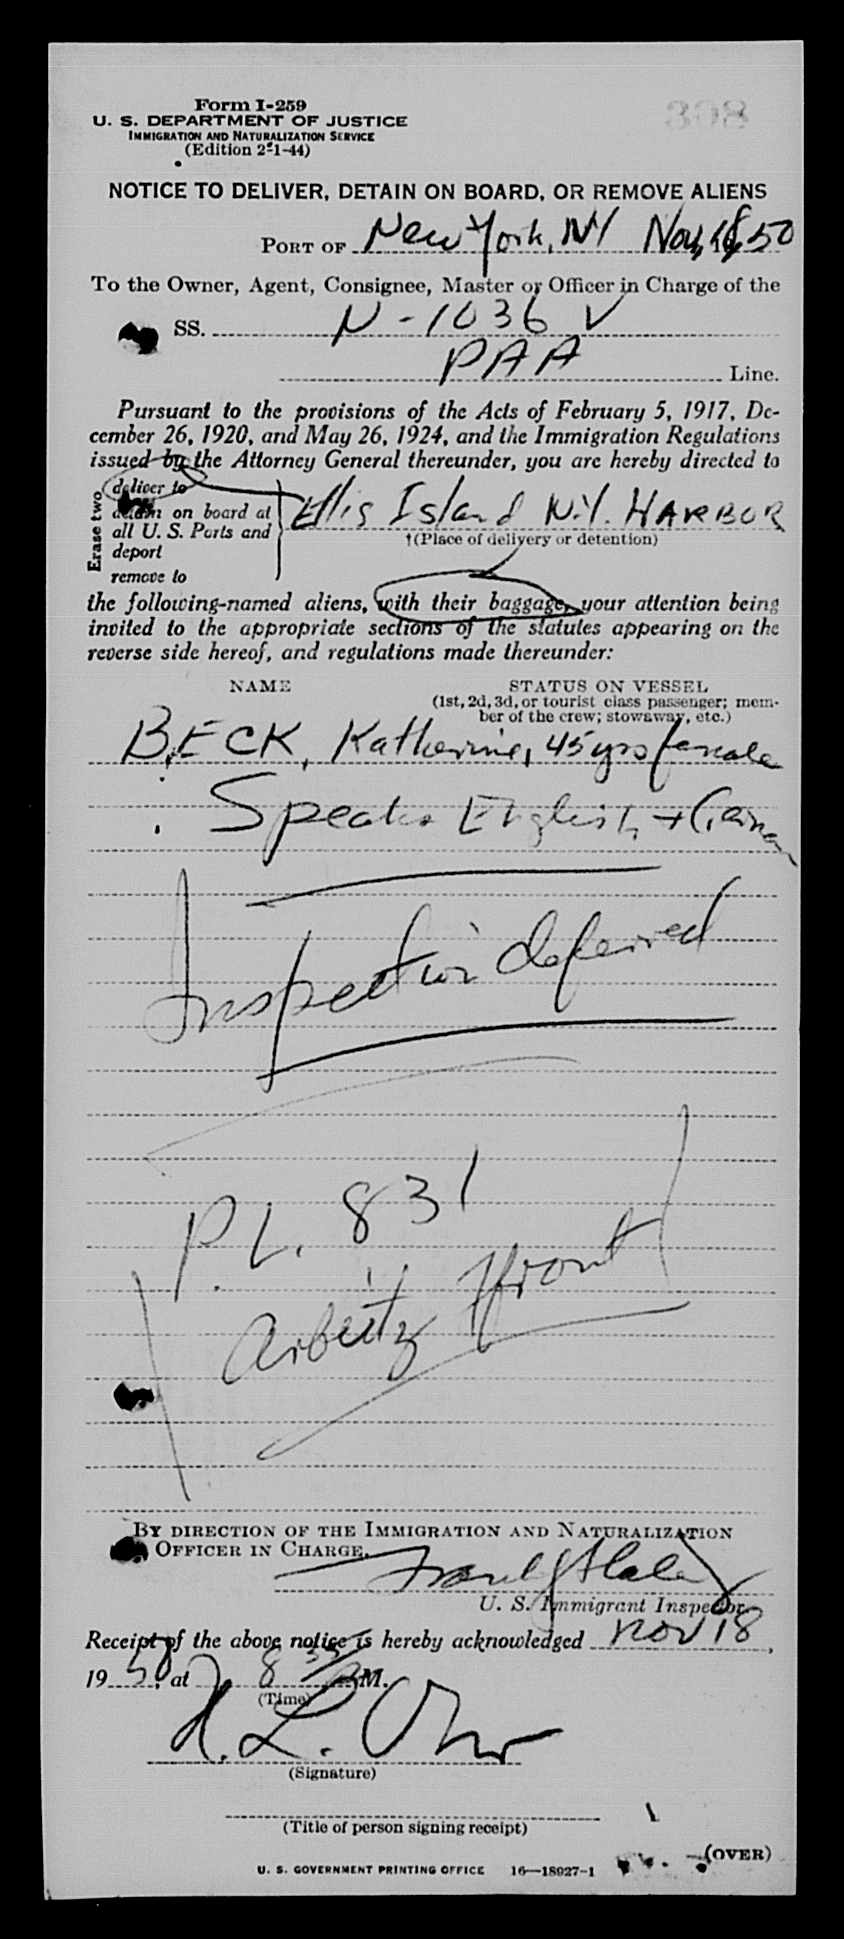 Form I-259
U. S. DEPARTMENT OF JUSTICE
IMMIGRATION AND NATURALIZATION SERVICE
(Edition 2-1-44)
308
NOTICE TO DELIVER, DETAIN ON BOARD, OR REMOVE ALIENS
PORT OF New York, NY Nov, 18, 50
To the Owner, Agent, Consignee, Master or Officer in Charge of the
SS. N-1036 V
PAA Line.
Pursuant to the provisions of the Acts of February 5, 1917, De-
cember 26, 1920, and May 26, 1924, and the Immigration Regulations
issued by the Attorney General thereunder, you are hereby directed to
Erase two
deliver to
detain on board at
all U. S. Ports and
deport
remove to
Ellis Island N.Y. HARBOR
†(Place of delivery or detention)
the following-named aliens, with their baggage, your attention being
invited to the appropriate sections of the statutes appearing on the
reverse side hereof, and regulations made thereunder:
NAME STATUS ON VESSEL
(1st, 2d, 3d, or tourist class passenger; mem-
ber of the crew; stowaway, etc.)
BECK, Katherine, 45 yrs female
Speaks English + German
Inspection deferred
P.L. 831
front
BY DIRECTION OF THE IMMIGRATION AND NATURALIZATION
OFFICER IN CHARGE.
U. S. Immigrant Inspector.
Receipt of the above notice is hereby acknowledged Nov 18,
1950, at 8 M.
(Time)
(Signature)
(Title of person signing receipt)
(OVER)
U. S. GOVERNMENT PRINTING OFFICE 16—18927-1